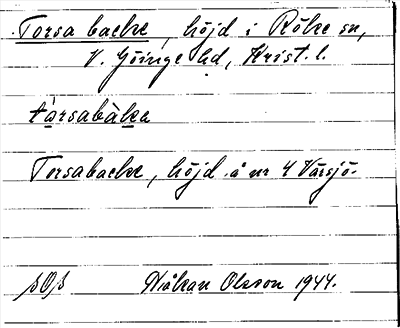 Torsa backe, höjd i Röke sn,
V. Göinge hd, Krist. l.
tàrsabàka
Torsabacke, höjd å nr 4 Värsjö.
Håkan Olsson 1944.